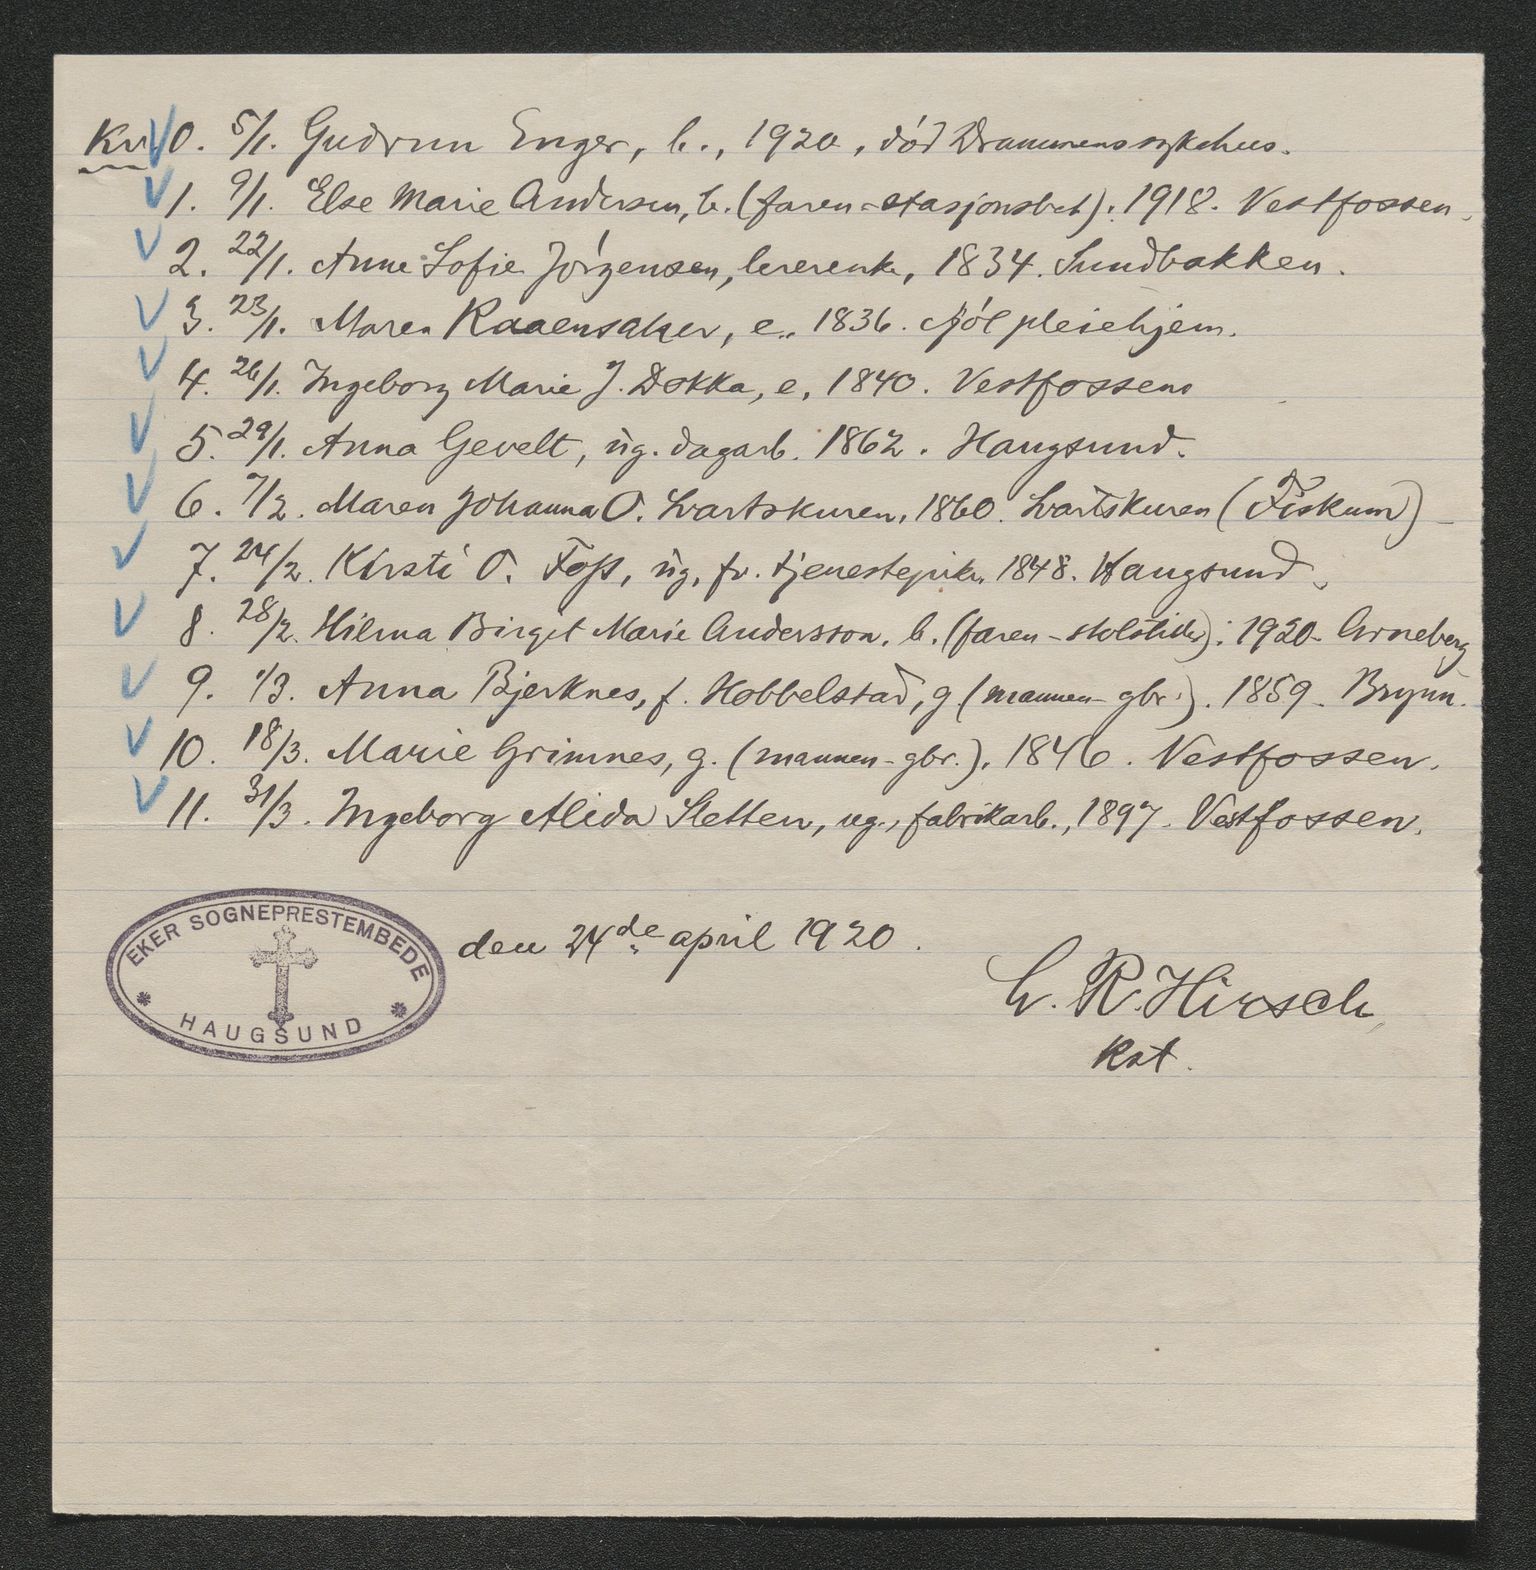 Kv. 0. 5/1. Gudrun Enger, b., 1920, død Drammens sykehus.
1. 9/1. Else Marie Andersen, b. (faren - stasjonsbet). 1918. Vestfossen.
2. 22/1. Anne Sofie Jørgensen, lererenke, 1834. Sundbakken.
3. 23/1. Maren Raaensaker, e., 1836. Fjøl pleiehjem.
4. 26/1. Ingeborg Marie J. Dokka, e, 1840. Vestfossen
5. 29/1. Anna Gevelt, ug. dagarb. 1862. Haugsund.
6. 7/2. Maren Johanna O. Svartskuren, 1860. Svartskuren (Fiskum)
7. 24/2. Kirsti O. Foss, ug, fv. tjenestepike, 1848. Haugsund.
8. 28/2. Hilma Birgit Marie Andersson, b. (faren - ). 1920. Arneberg
9. 1/3. Anna Bjerknes, f. Hobbelstad, g (mannen - gbr.). 1859. Brynn.
10. 18/3. Marie Grimnes, g. (mannen - gbr.), 1846. Vestfossen.
11. 31/3. Ingeborg Alida Sletten, ug., fabrikarb., 1897. Vestfossen.
EKER SOGNEPRESTEMBEDE
HAUGSUND
den 24de april 1920.
H. R. Hirsch
Kst.